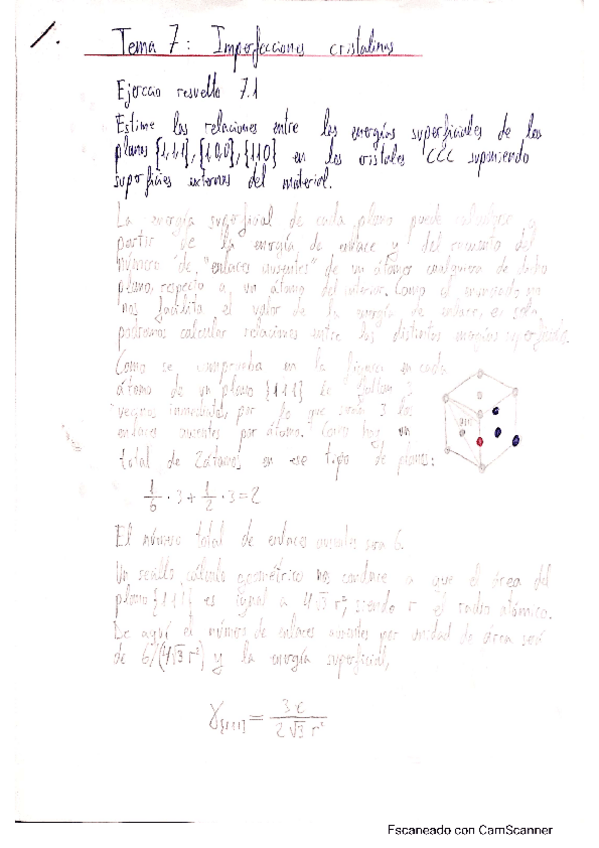 1.
Tema 7: Imperfecciones cristalinas
Ejercicio resuelto 7.1
Estime las relaciones entre las energías superficiales de los
planos {1,1,1}, {1,0,0}, {110} en los cristales CCC suponiendo
superficies externas del material.
La energía superficial de cada plano puede calcularse a
partir de la energía de enlace y del recuento del
número de "enlaces ausentes" de un átomo cualquiera de dicho
plano, respecto a un átomo del interior. Como el enunciado no
nos facilita el valor de la energía de enlace, solo
podremos calcular relaciones entre las distintas energías superficiales.
Como se comprueba en la figura en cada
átomo de un plano {111} le faltan 3
vecinos inmediatos, por lo que serán 3 los
enlaces ausentes por átomo. Como hay un
total de 2 átomos en ese tipo de planos:
1/6 · 3 + 1/2 · 3 = 2
El número total de enlaces ausentes son 6.
Un sencillo cálculo geométrico nos conduce a que el área del
plano {111} es igual a 4√3 r², siendo r el radio atómico.
De aquí el número de enlaces ausentes por unidad de área será
de 6/(4√3 r²) y la energía superficial,
γ{111} = 3ε / 2√3 r²
Escaneado con CamScanner